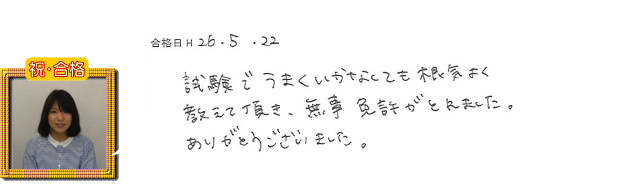 祝・合格
合格日 H 26.5.22
試験でうまくいかなくても根気よく
教えて頂き、無事免許がとれました。
ありがとうございました。